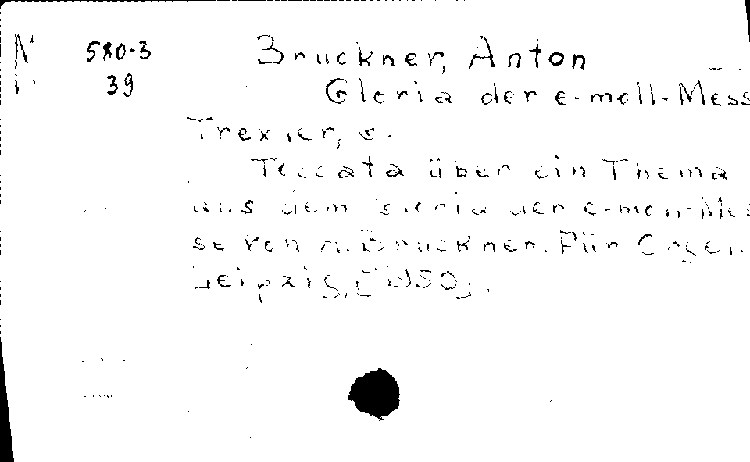 N 580-3 Bruckner, Anton
39 Gloria der e-moll-Mess
Trexler, G.
Toccata über ein Thema
aus dem Gloria der e-moll-Mes
se von A. Bruckner. Für Orgel.
Leipzig, [1950].